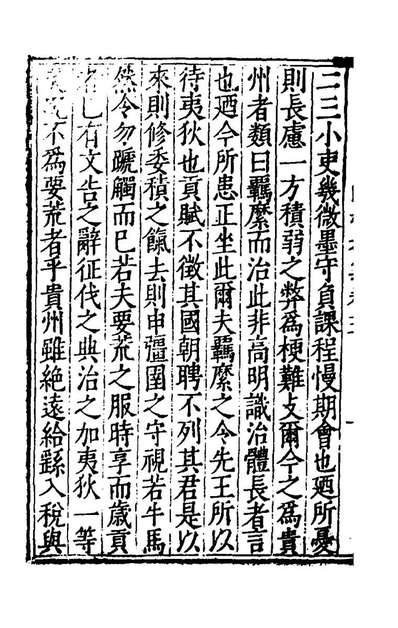 二三小吏幾微墨守負課程慢期會也廼所憂
則長慮一方積弱之弊為梗難攴爾今之為貴
州者類曰羈縻而治此非高明識治體長者言
也廼今所患正坐此爾夫羈縻之令先王所以
待夷狄也貢賦不徵其國朝聘不列其君是以
來則修委積之餼去則申疆圉之守視若牛馬
然令勿蹶觸而巳若夫要荒之服時享而歲貢
巳有文告之辭征伐之典治之加夷狄一等
不為要荒者乎貴州雖絶遠給繇入稅與